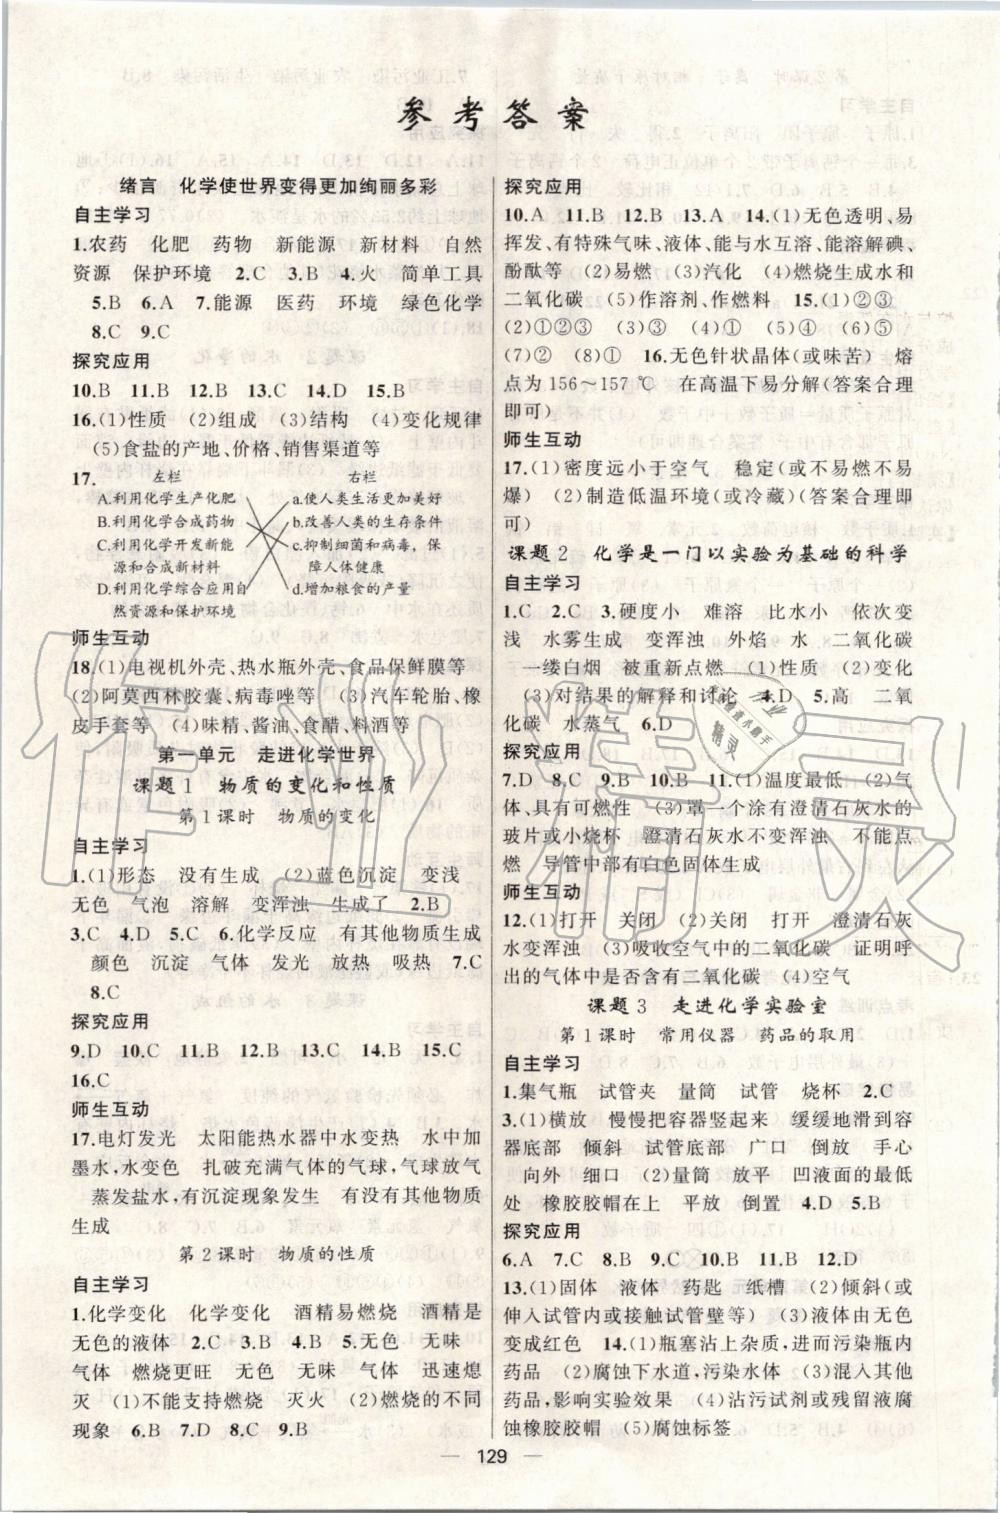 参考答案
绪言　化学使世界变得更加绚丽多彩
自主学习
1.农药　化肥　药物　新能源　新材料　自然
资源　保护环境　2.C　3.B　4.火　简单工具
5.B　6.A　7.能源　医药　环境　绿色化学
8.C　9.C
探究应用
10.B　11.B　12.B　13.C　14.D　15.B
16.(1)性质　(2)组成　(3)结构　(4)变化规律
(5)食盐的产地、价格、销售渠道等
17.　左栏　右栏
A.利用化学生产化肥　a.使人类生活更加美好
B.利用化学合成药物　b.改善人类的生存条件
C.利用化学开发新能　c.抑制细菌和病毒，保
源和合成新材料　障人体健康
D.利用化学综合应用自　d.增加粮食的产量
然资源和保护环境
师生互动
18.(1)电视机外壳、热水瓶外壳、食品保鲜膜等
(2)阿莫西林胶囊、病毒唑等　(3)汽车轮胎、橡
皮手套等　(4)味精、酱油、食醋、料酒等
第一单元　走进化学世界
课题1　物质的变化和性质
第1课时　物质的变化
自主学习
1.(1)形态　没有生成　(2)蓝色沉淀　变浅
无色　气泡　溶解　变浑浊　生成了　2.B
3.C　4.D　5.C　6.化学反应　有其他物质生成
颜色　沉淀　气体　发光　放热　吸热　7.C
8.C
探究应用
9.D　10.C　11.B　12.B　13.C　14.B　15.C
16.C
师生互动
17.电灯发光　太阳能热水器中水变热　水中加
墨水，水变色　扎破充满气体的气球，气球放气
蒸发盐水，有沉淀现象发生　有没有其他物质
生成
第2课时　物质的性质
自主学习
1.化学变化　化学变化　酒精易燃烧　酒精是
无色的液体　2.C　3.B　4.B　5.无色　无味
气体　燃烧更旺　无色　无味　气体　迅速熄
灭　(1)不能支持燃烧　灭火　(2)燃烧的不同
现象　6.B　7.D　8.C　9.B
探究应用
10.A　11.B　12.B　13.A　14.(1)无色透明、易
挥发、有特殊气味、液体、能与水互溶、能溶解碘、
酚酞等　(2)易燃　(3)汽化　(4)燃烧生成水和
二氧化碳　(5)作溶剂、作燃料　15.(1)②③
(2)①②③　(3)④　(4)①　(5)⑤　(6)⑤
(7)⑦　(8)①　16.无色针状晶体(或味苦)　熔
点为156～157 ℃　在高温下易分解(答案合理
即可)
师生互动
17.(1)密度远小于空气　稳定(或不易燃不易
爆)　(2)制造低温环境(或冷藏)(答案合理即
可)
课题2　化学是一门以实验为基础的科学
自主学习
1.C　2.C　3.硬度小　难溶　比水小　依次变
浅　水雾生成　变浑浊　外焰　水　二氧化碳
一缕白烟　被重新点燃　(1)性质　(2)变化
(3)对结果的解释和讨论　4.D　5.高　二氧
化碳　水蒸气　6.D
探究应用
7.D　8.C　9.B　10.B　11.(1)温度最低　(2)气
体、具有可燃性　(3)罩一个涂有澄清石灰水的
玻片或小烧杯　澄清石灰水不变浑浊　不能点
燃　导管中部有白色固体生成
师生互动
12.(1)打开　关闭　(2)关闭　打开　澄清石灰
水变浑浊　(3)吸收空气中的二氧化碳　证明呼
出的气体中是否含有二氧化碳　(4)空气
课题3　走进化学实验室
第1课时　常用仪器　药品的取用
自主学习
1.集气瓶　试管夹　量筒　试管　烧杯　2.C
3.(1)横放　慢慢把容器竖起来　缓缓地滑到容
器底部　倾斜　试管底部　广口　倒放　手心
向外　细口　(2)量筒　放平　凹液面的最低
处　橡胶胶帽在上　平放　倒置　4.D　5.B
探究应用
6.A　7.C　8.B　9.C　10.B　11.B　12.D
13.(1)固体　液体　药匙　纸槽　(2)倾斜(或
伸入试管内或接触试管壁等)　(3)液体由无色
变成红色　14.(1)瓶塞沾上杂质，进而污染瓶内
药品　(2)腐蚀下水道，污染水体　(3)混入其他
药品，影响实验效果　(4)沾污试剂或残留液腐
蚀橡胶胶帽　(5)腐蚀标签
129
作业精灵